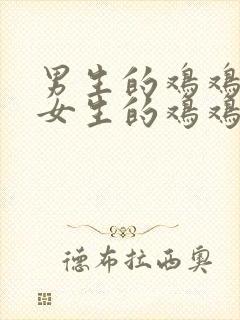 男生的鸡鸡
女生的鸡鸡
德布拉西奥